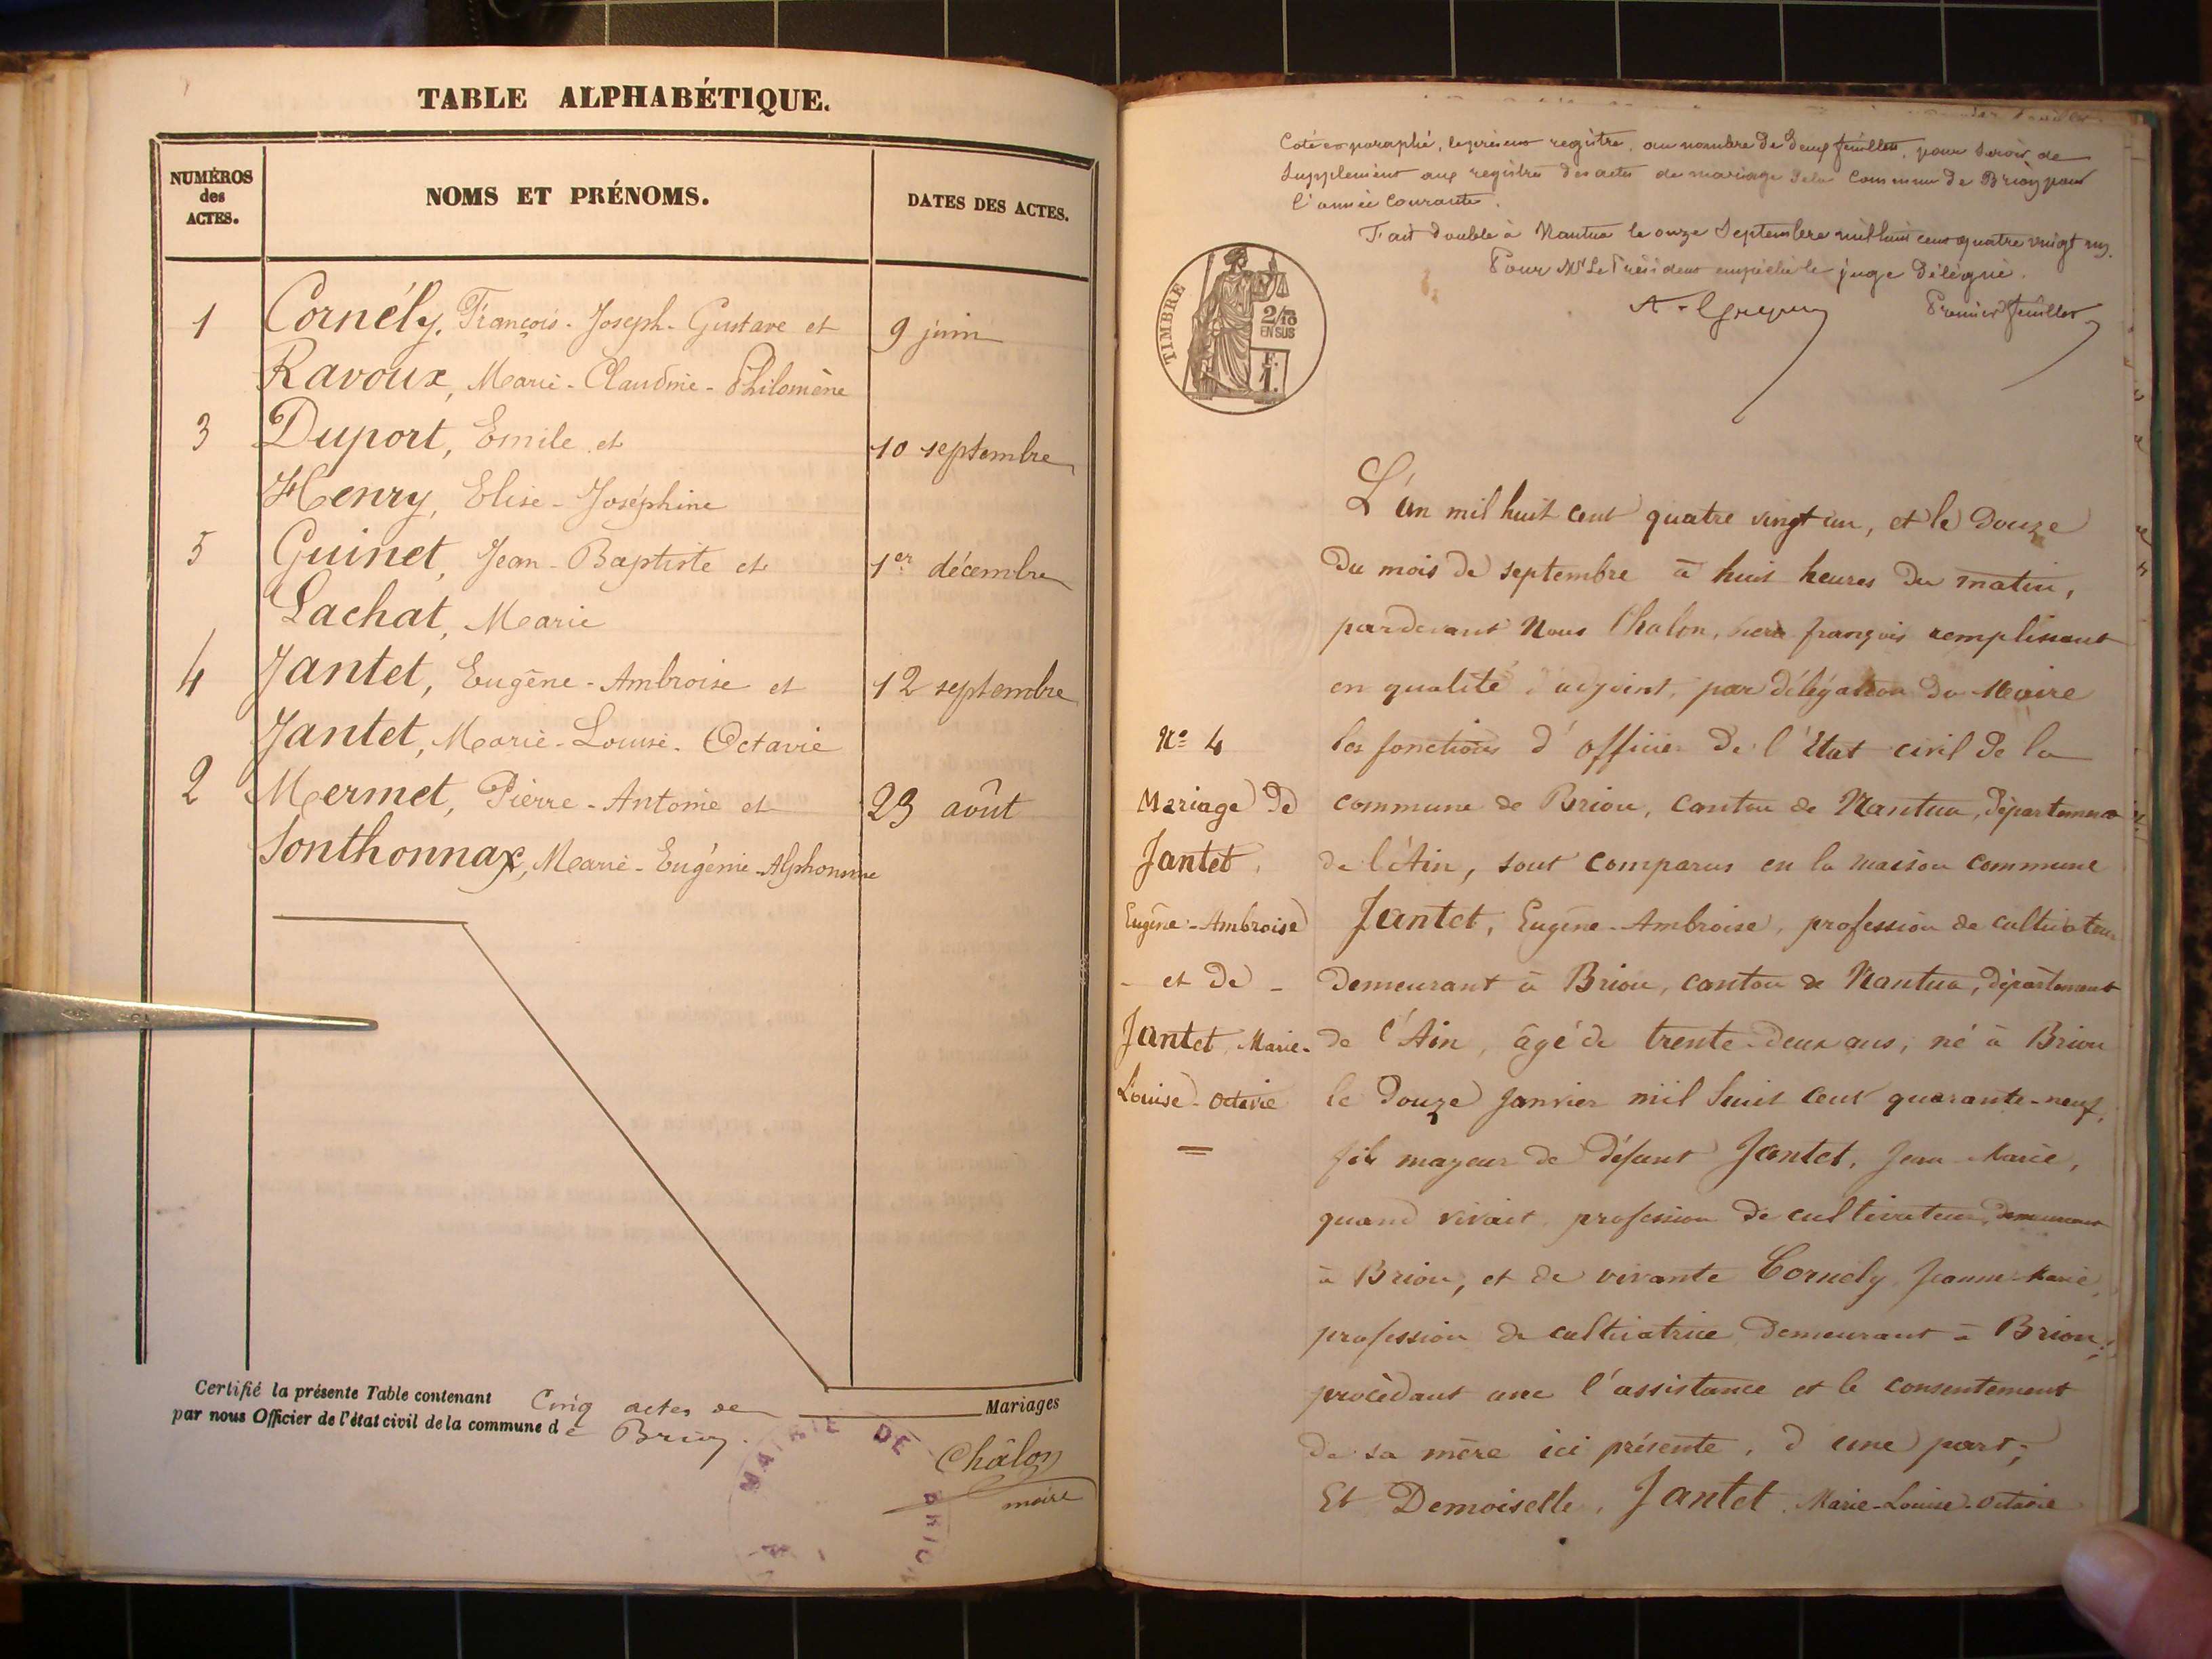 TABLE ALPHABÉTIQUE.
NUMÉROS
des
ACTES.
NOMS ET PRÉNOMS.
DATES DES ACTES.
1 Cornély, François-Joseph-Gustave et 9 juin
Ravoux, Marie-Claudine-Philomène
3 Duport, Emile et 10 septembre
Henry, Elise-Joséphine
5 Guinet, Jean-Baptiste et 1er décembre
Lachat, Marie
4 Jantet, Eugêne-Ambroise et 12 septembre
Jantet, Marie-Louise-Octavie
2 Mermet, Pierre-Antoine et 23 août
Sonthonnax, Marie-Eugénie-Alphonsine
Certifié la présente Table contenant Cinq actes de Mariages
par nous Officier de l'état civil de la commune de Brion.
MAIRIE DE BRION
Châlon
maire
Coté et paraphé, le présent registre, au nombre de deux feuillets, pour servir de
supplément aux registres des actes de mariage de la Commune de Brion pour
l'année courante.
Fait double à Nantua le onze Septembre mil huit cent quatre vingt un.
Pour Mr Le Président empêché le juge délégué.
Premier feuillet
TIMBRE
2/10
EN SUS
F.
1.
L'an mil huit cent quatre vingt un, et le douze
du mois de septembre à huit heures du matin,
pardevant Nous Chalon, françois remplissant
en qualité d'adjoint, par délégation du Maire
les fonctions d'officier de l'État civil de la
commune de Brion, canton de Nantua, département
de l'Ain, sont comparus en la maison commune
Jantet, Eugêne-Ambroise, profession de cultivateur
demeurant à Brion, canton de Nantua, département
de l'Ain, âgé de trente-deux ans, né à Brion
le douze Janvier mil huit cent quarante-neuf,
fils mageur de défunt Jantet, Jean Marie,
quand vivait profession de cultivateur, demeurant
à Brion, et de vivante Cornély Jeanne-Marie,
profession de cultivatrice demeurant à Brion;
procédant avec l'assistance et le consentement
de sa mère ici présente, d'une part;
Et Demoiselle, Jantet Marie-Louise-Octavie
No 4
Mariage de
Jantet,
Eugêne-Ambroise
- et de -
Jantet Marie-
Louise-Octavie